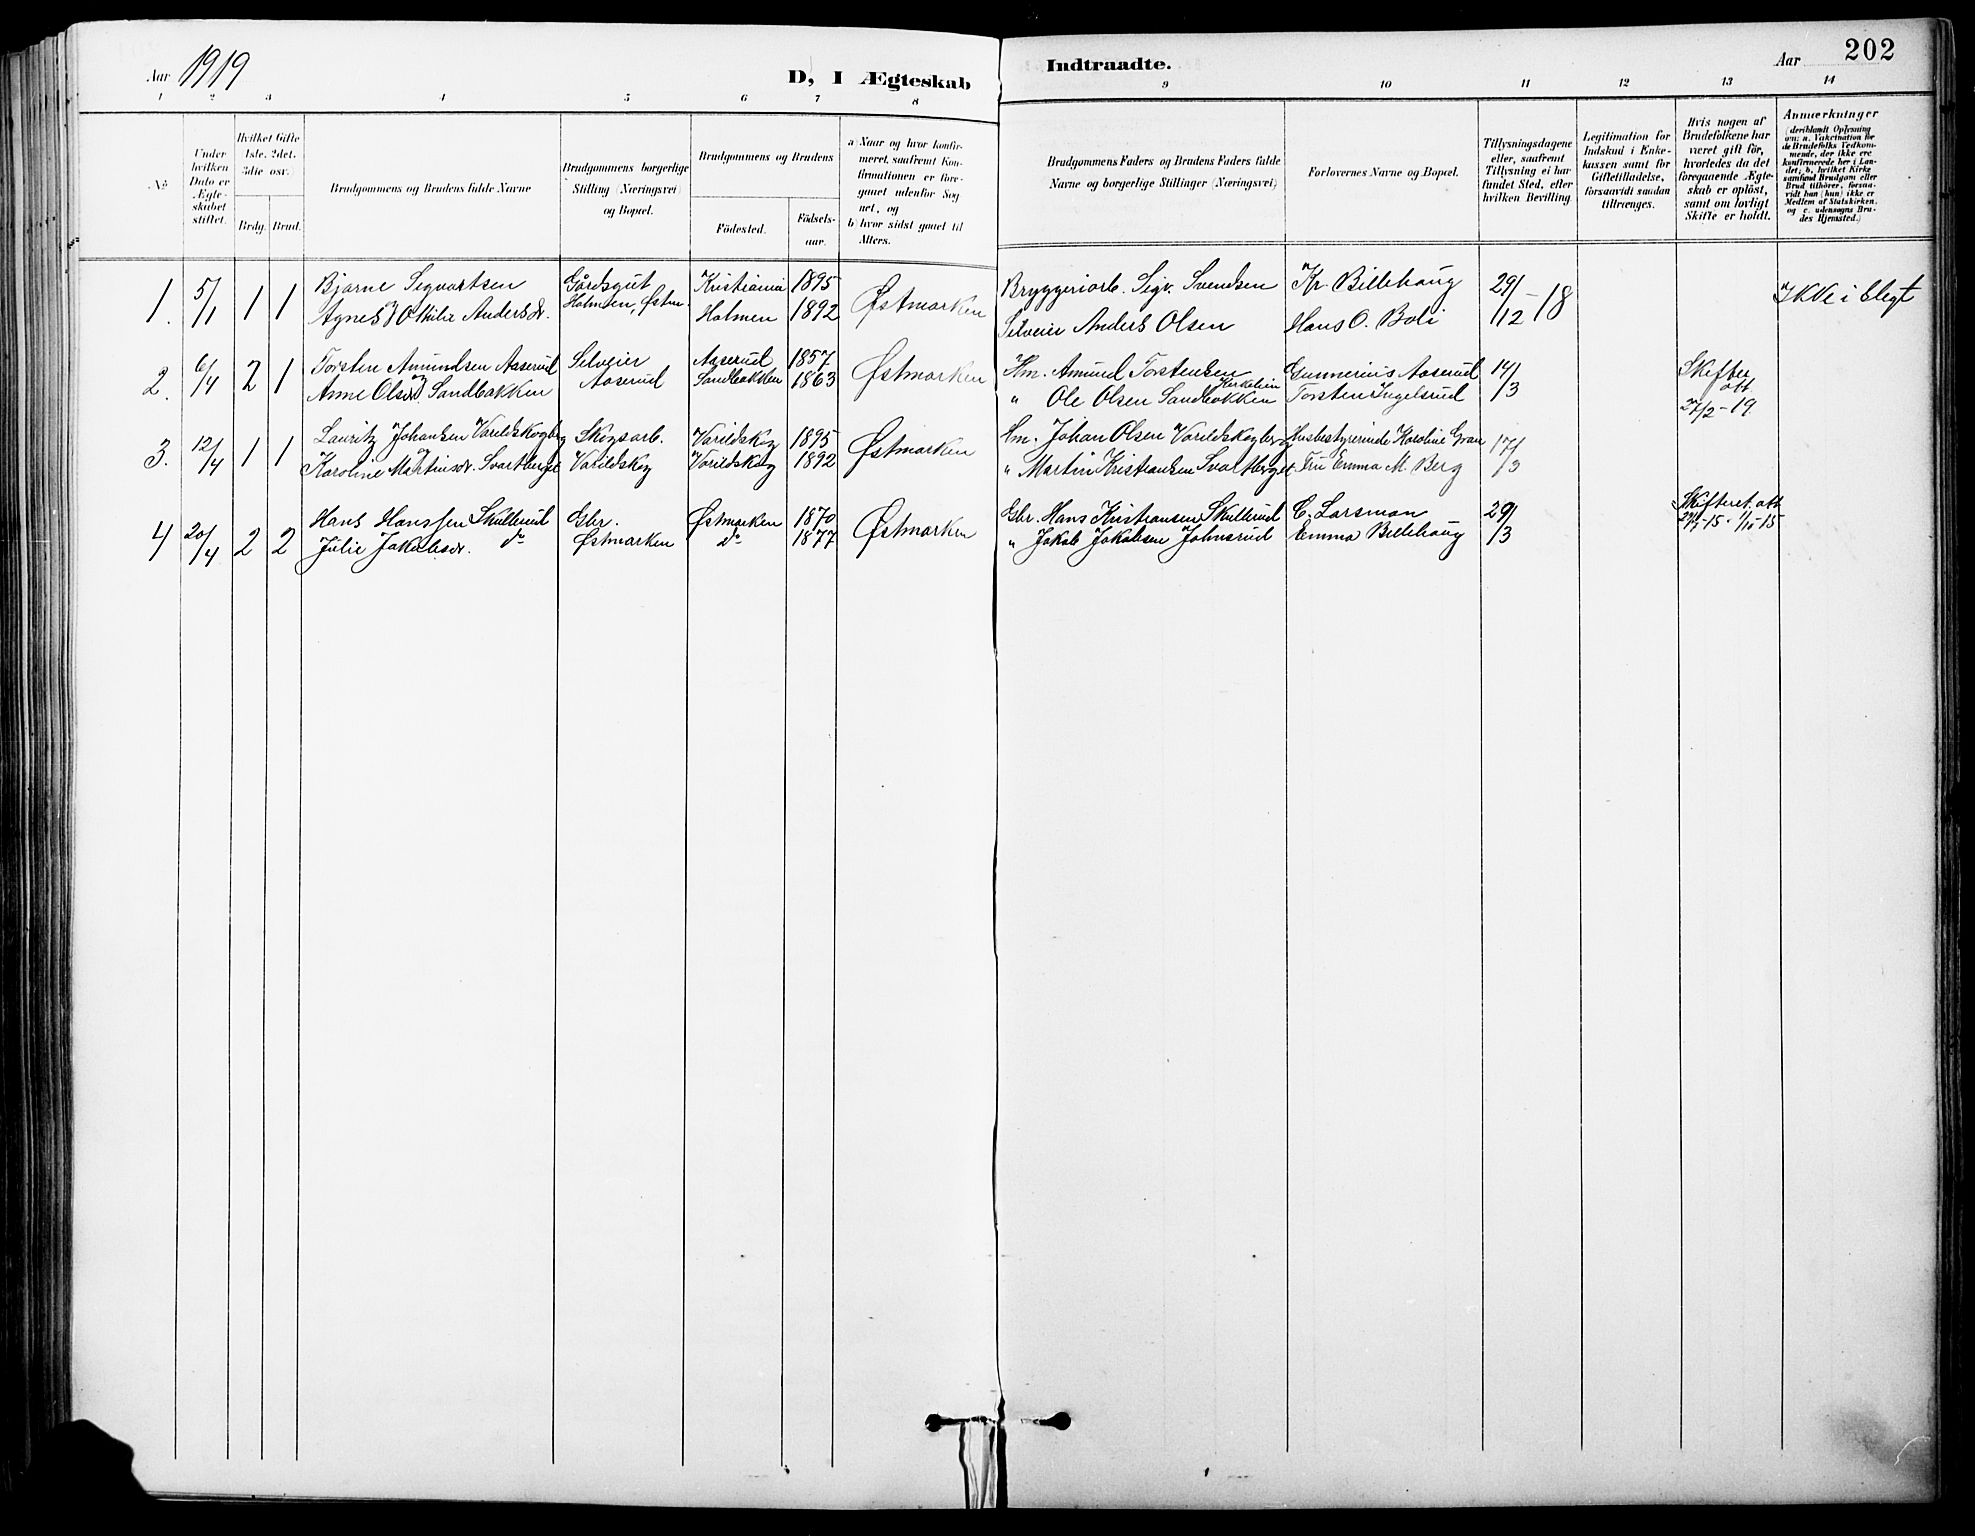 Aar 1919
D, I Ægteskab Indtraadte.
Aar 202
1 2 3 4 5 6 7 8 9 10 11 12 13 14
No.
Under hvilken Dato er Ægteskabet stiftet.
Hvilket Gifte 1ste, 2det, 3die osv.
Brdg. Brud.
Brudgommens og Brudens fulde Navne
Brudgommens borgerlige Stilling (Næringsvei) og Bopæl.
Brudgommens og Brudens
Födested.
Födselsaar.
a) Naar og hvor konfirmeret, saafremt Konfirmationen er foregaaet udenfor Sognet, og
b) hvor sidst gaaet til Alters.
Brudgommens Faders og Brudens Faders fulde Navne og borgerlige Stillinger (Næringsvei)
Forlovernes Navne og Bopæl.
Tillysningsdagene eller, saafremt Tillysning ei har fundet Sted, efter hvilken Bevilling.
Legitimation for Indskud i Enkekassen samt for Giftetilladelse, forsaavidt saadan tiltrænges.
Hvis nogen af Brudefolkene har været gift för, hvorledes da det foregaaende Ægteskab er oplöst, samt om lovligt Skifte er holdt.
Anmærkninger (deriblandt Oplysning om: a. Vakcination for de Brudefolks Vedkommende, der ikke ere konfirmerede her i Landet; b. hvilket Kirkesamfund Brudgom eller Brud tilhörer, forsaavidt han (hun) ikke er Medlem af Statskirken, og c. udensogns Brudes Hjemsted.)
1. 5/1 1 1 Bjarne Sigvartsen Gårdsgut Kristiania 1895 Østmarken Bryggeriarb. Sigv. Svendsen Kr. Billehaug 29/12-18 Ikke i slegt
Agnes Othilie Andersdr. Holmen, Østm. Holmen 1892 Selveier Anders Olsen Hans O. Boli
2. 6/4 2 1 Torsten Amundsen Aaserud Selveier Aaserud 1857 Østmarken Hm. Amund Torstensen Gunnerius Aaserud 14/3 Skifteatt 27/2-19.
Anne Olsd. Sandbakken Aaserud Sandbakken 1863 " Ole Olsen Sandbakken Torsten Ingelsrud
3. 12/4 1 1 Lauritz Johansen Varildskogberg Skogsarb. Varildskog 1895 Østmarken Hm. Johan Olsen Varildskogberg Husbestyrerinde Karoline Gran 17/3
Karoline Martinsdr. Svartberget Varildskog Varildskog 1892 " Martin Kristiansen Svartberget Fru Emma M. Berg
4 20/4 2 2 Hans Hanssen Skullerud Gbr. Østmarken 1870 Østmarken Gbr. Hans Kristiansen Skullerud C. Larsmon 29/3 Skifteret.att
Julie Jakobsdr. do Østmarken do 1877 " Jakob Jakobsen Johnsrud Emma Billehaug